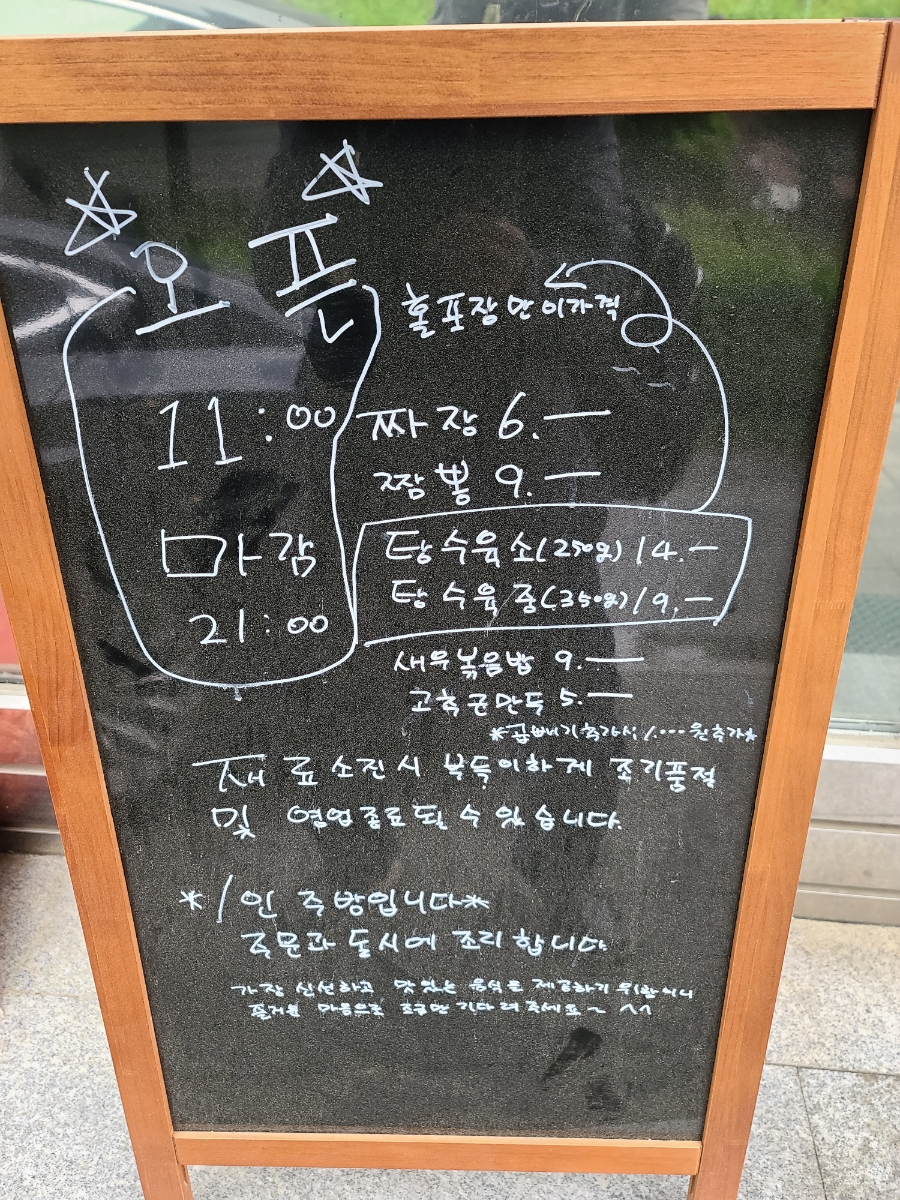 오픈
11:00
마감
21:00
홀포장만이가격
짜장 6.—
짬뽕 9.—
탕수육소(250g) 14.—
탕수육중(350g) 19.—
새우볶음밥 9.—
고추군만두 5.—
*곱빼기추가시 1.000원추가*
재료소진시 부득이하게 조기품절
및 영업종료될 수 있습니다.
*1인 주방입니다*
주문과 동시에 조리합니다.
가장 신선하고 맛있는 음식을 제공하기 위함이니
즐거운 마음으로 조금만 기다려주세요~ ^^